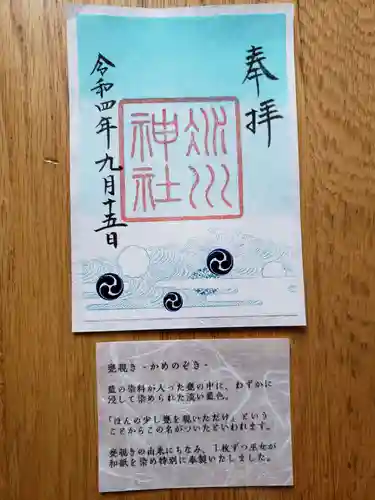 奉拝
氷川
神社
令和四年九月十五日
甕覗き - かめのぞき -
藍の染料が入った甕の中に、わずかに
浸して染められた淡い藍色。
「ほんの少し甕を覗いただけ」という
ことからこの名がついたといわれます。
甕覗きの由来にちなみ、1枚ずつ巫女が
和紙を染め特別に奉製いたしました。